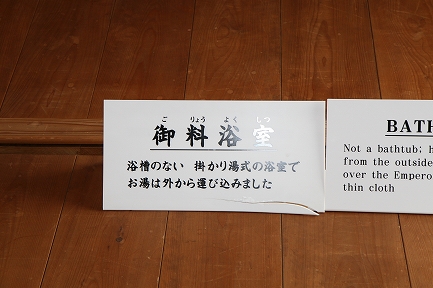 ご りょう よく しつ
御料浴室
浴槽のない 掛かり湯式の浴室で
お湯は外から運び込みました
BATH
Not a bathtub; h
from the outside
over the Empero
thin cloth